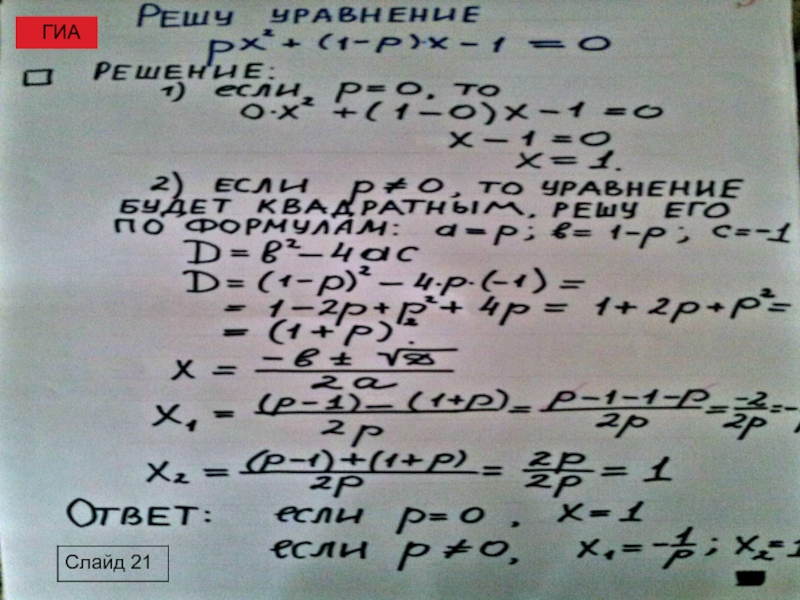 ГИА
РЕШУ УРАВНЕНИЕ
px² + (1-p)·x - 1 = 0
РЕШЕНИЕ:
1) если p = 0, то
0·x² + (1-0)x - 1 = 0
x - 1 = 0
x = 1.
2) ЕСЛИ p ≠ 0, ТО УРАВНЕНИЕ
БУДЕТ КВАДРАТНЫМ, РЕШУ ЕГО
ПО ФОРМУЛАМ: a = p; в = 1-p; c = -1
D = в² - 4ac
D = (1-p)² - 4·p·(-1) =
= 1 - 2p + p² + 4p = 1 + 2p + p² =
= (1+p)².
x = (-в ± √D) / 2a
x₁ = ((p-1) - (1+p)) / 2p = (p-1-1-p) / 2p = -2 / 2p = -
x₂ = ((p-1) + (1+p)) / 2p = 2p / 2p = 1
ОТВЕТ: если p = 0, x = 1
если p ≠ 0, x₁ = -1/p; x₂ = 1
Слайд 21